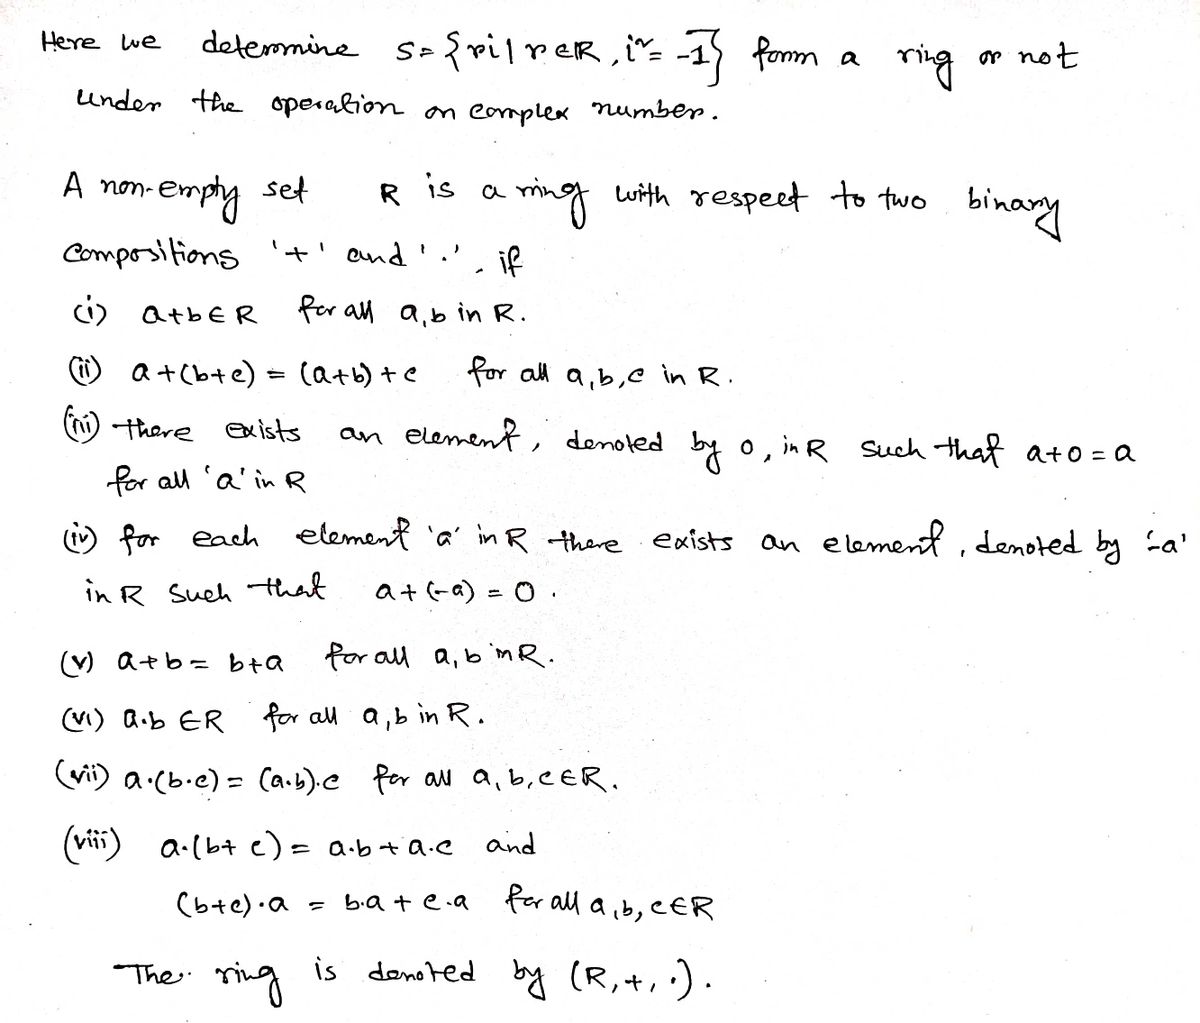 Here we determine S = {ri | r ∈ ℝ, i² = -1} form a ring or not
under the operation on complex number.
A non-empty set R is a ring with respect to two binary
compositions '+' and '.', if
(i) a+b ∈ R for all a,b in R.
(ii) a+(b+c) = (a+b)+c for all a,b,c in R.
(iii) there exists an element, denoted by 0, in R such that a+0 = a
for all 'a' in R
(iv) for each element 'a' in R there exists an element, denoted by '-a'
in R such that a+(-a) = 0.
(v) a+b = b+a for all a,b in R.
(vi) a·b ∈ R for all a,b in R.
(vii) a·(b·c) = (a·b)·c for all a,b,c ∈ R.
(viii) a·(b+c) = a·b + a·c and
(b+c)·a = b·a + c·a for all a,b,c ∈ R
The ring is denoted by (R,+,·).